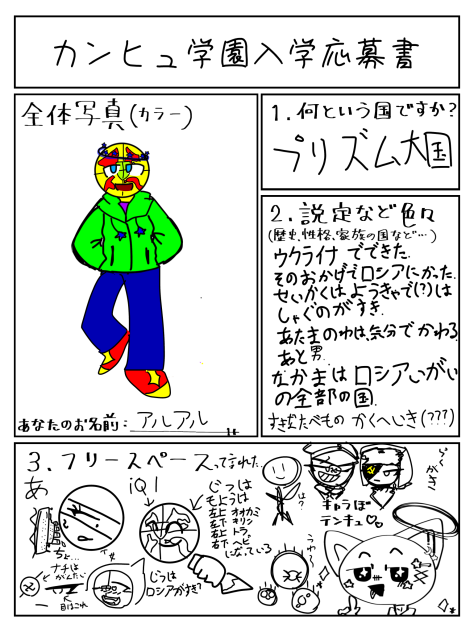 カンヒュ学園入学応募書
全体写真(カラー)
あなたのお名前: アルアル
1.何という国ですか?
プリズム大国
2.設定など色々
(歴史、性格、家族の国など…)
ウクライナでできた。
そのおかげでロシアにかった。
せいかくはようきゃで(?)は
しゃぐのがすき。
あたまのわは、気分でかわる
あと男.
なかまはロシアいがい
の全部の国.
すきなたべもの かくへいき(???)
3.フリースペース
ってまなれた.
あ
iQ1
じつは
もようは
左上 オオカミ
左下 キリン
右上 トラ
右下 ヘビ
になっている
ちょ…
ナチは
がんたい
じつは
ロシアがすぎ
は?
うわ〜
キャラぼ
テンキュ♡
らくがき